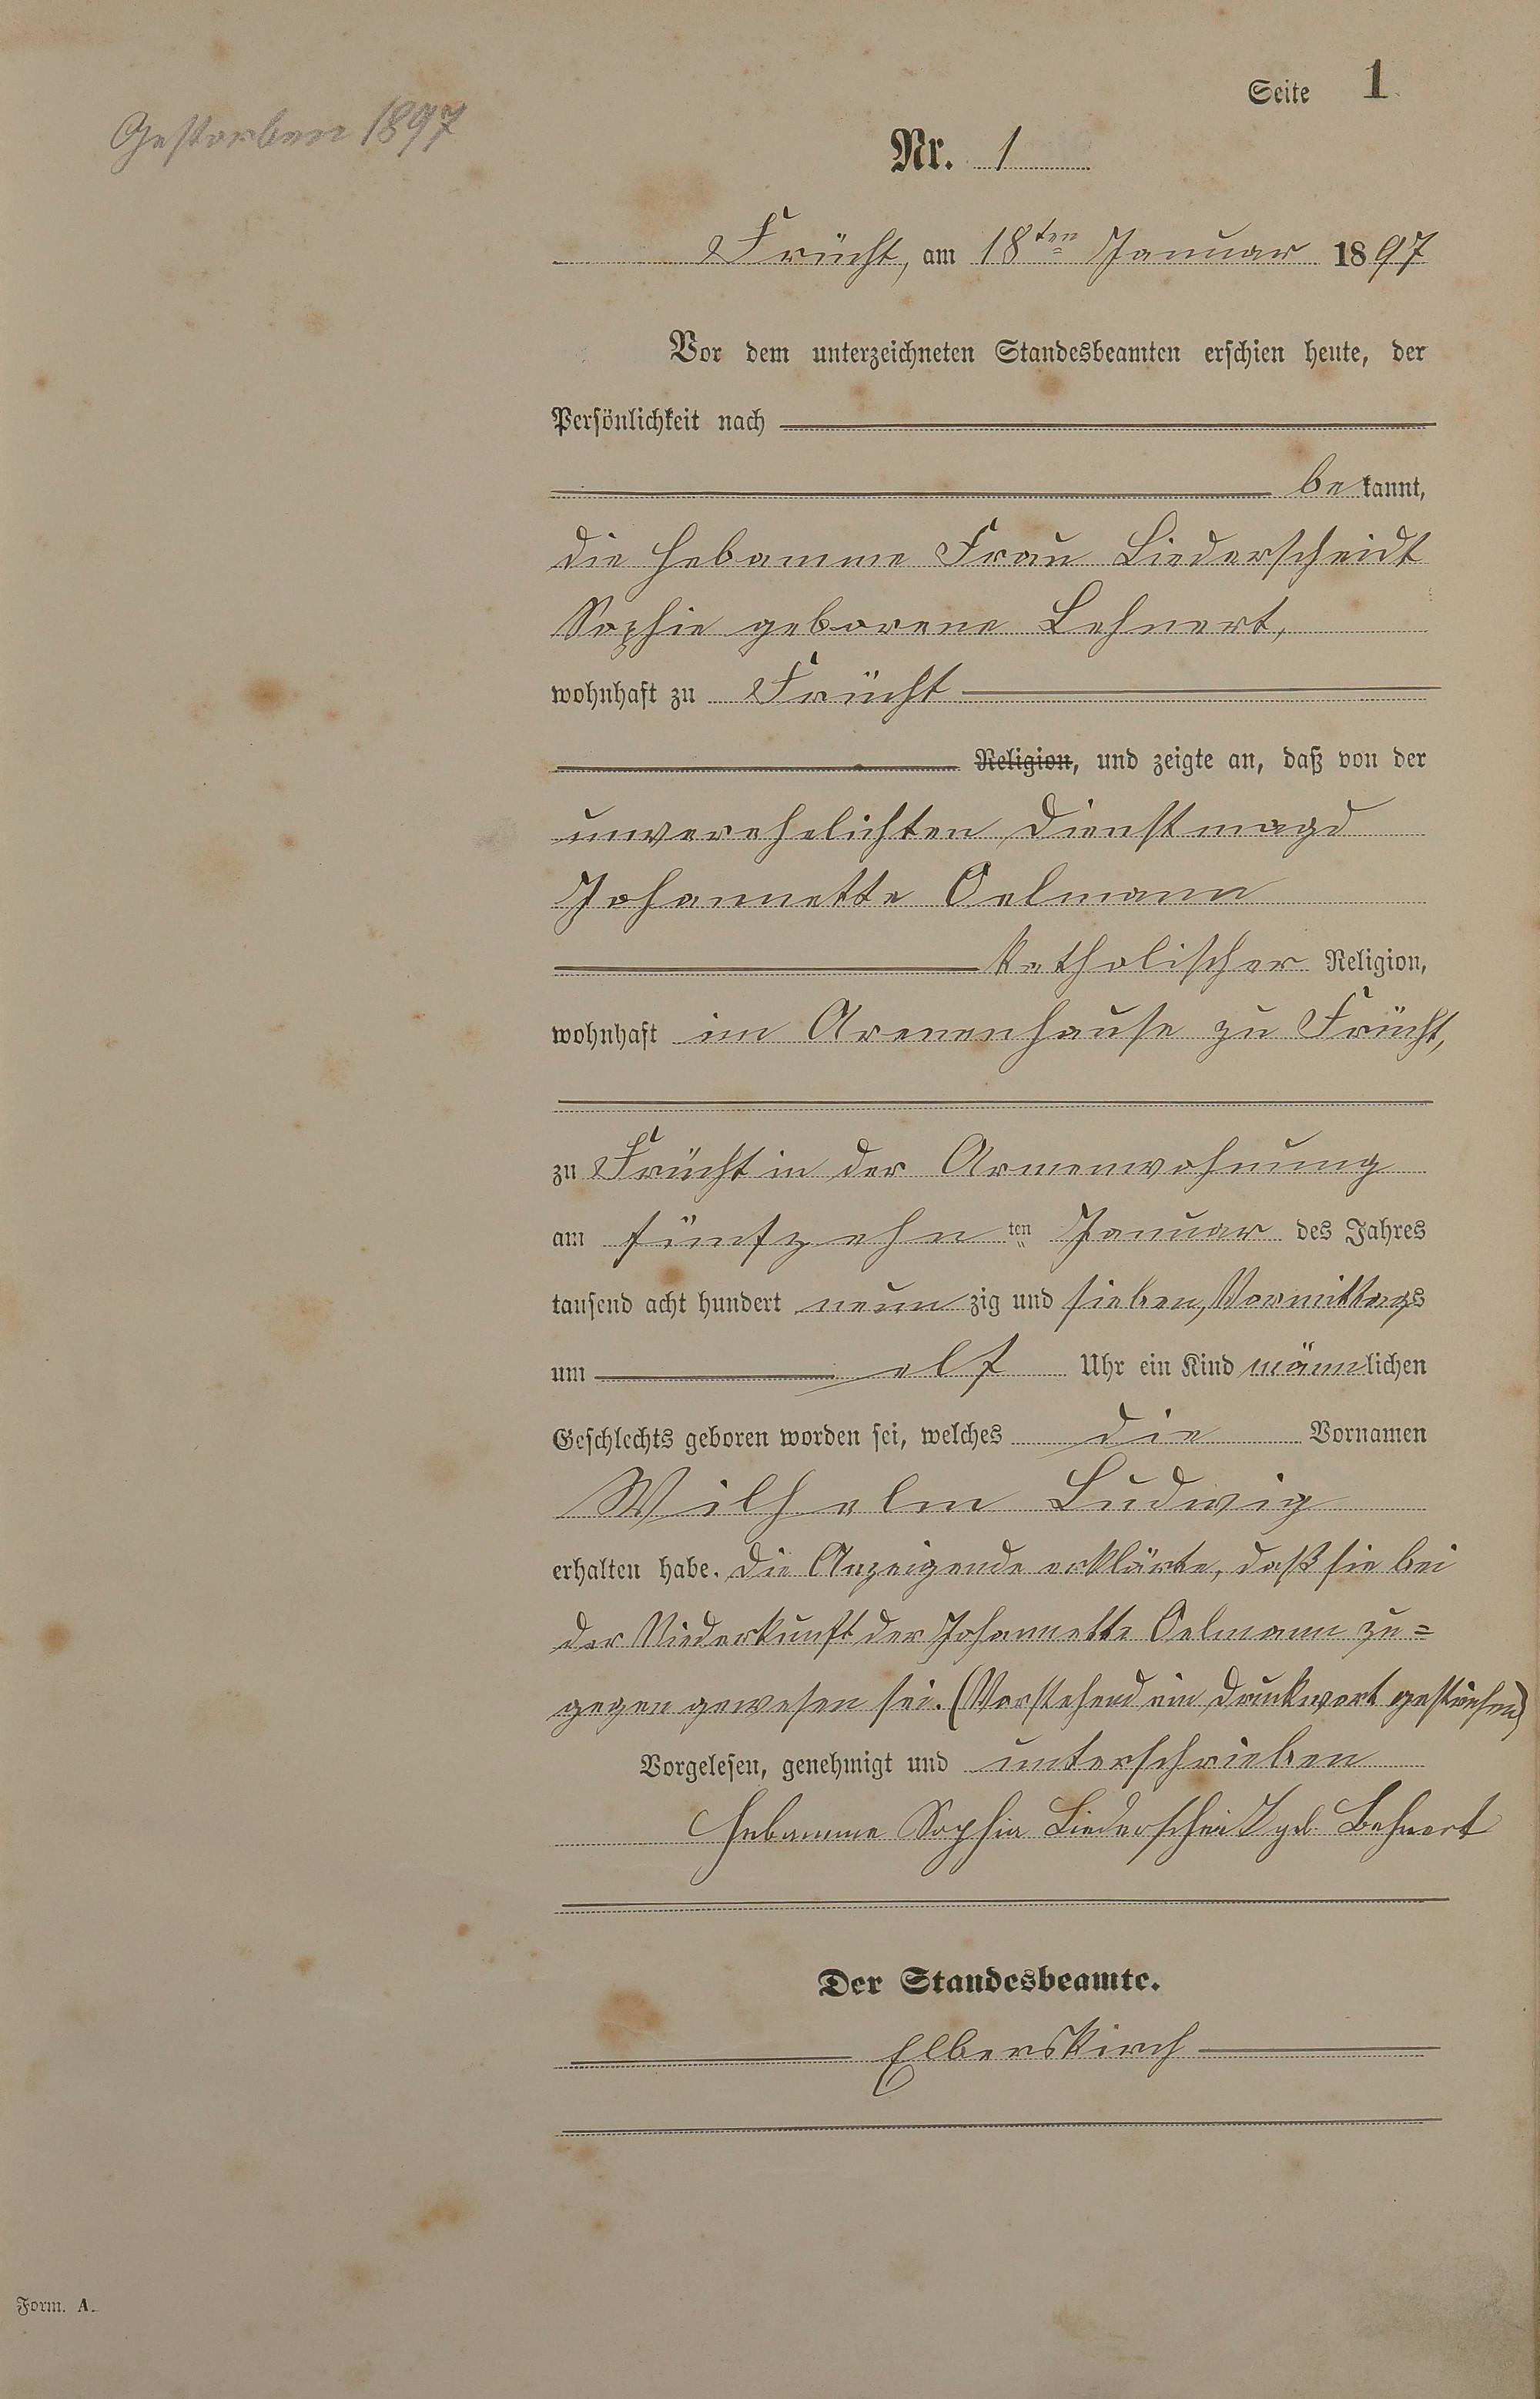 Seite 1
Gestorben 1897
Nr. 1
Frücht, am 18ten Januar 1897
Vor dem unterzeichneten Standesbeamten erschien heute, der
Persönlichkeit nach
bekannt,
die Hebamme Frau Liederscheidt
Sophie geborene Lehnert,
wohnhaft zu Frücht
Religion, und zeigte an, daß von der
unverehelichten Dienstmagd
Johannette Oelmann
katholischer Religion,
wohnhaft im Armenhause zu Frücht,
zu Frücht in der Armenwohnung
am fünfzehn ten Januar des Jahres
tausend acht hundert neun zig und sieben, Vormittags
um elf Uhr ein Kind männlichen
Geschlechts geboren worden sei, welches die Vornamen
Wilhelm Ludwig
erhalten habe. Die Anzeigende erklärte, daß sie bei
der Niederkunft der Johannette Oelmann zu=
gegen gewesen sei. (Vorstehend ein Druckwort gestrichen)
Vorgelesen, genehmigt und unterschrieben
Hebamme Sophia Liederscheidt geb. Lehnert
Der Standesbeamte.
Elberskirch
Form. A.